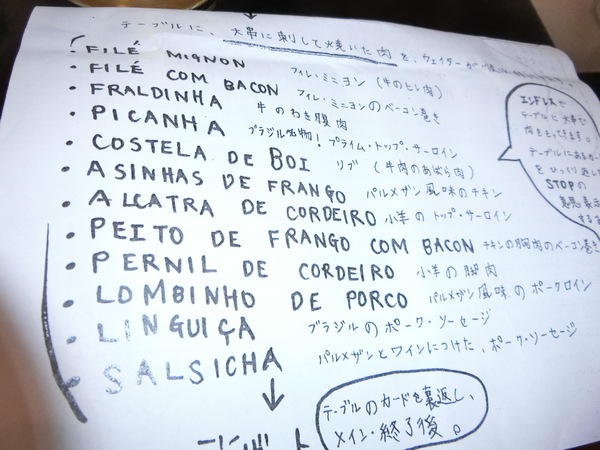 テーブルに、大串に刺して焼いた肉を、ウェイターが
• FILÉ MIGNON フィレ・ミニヨン (牛のヒレ肉)
• FILÉ COM BACON フィレ・ミニヨンのベーコン巻き
• FRALDINHA 牛のわき腹肉
• PICANHA ブラジル名物! プライム・トップ・サーロイン
• COSTELA DE BOI リブ (牛肉のあばら肉)
• ASINHAS DE FRANGO パルメザン風味のチキン
• ALCATRA DE CORDEIRO 小羊のトップ・サーロイン
• PEITO DE FRANGO COM BACON チキンの胸肉のベーコン巻き
• PERNIL DE CORDEIRO 小羊の脚肉
• LOMBINHO DE PORCO パルメザン風味のポークロイン
• LINGUIÇA ブラジルのポーク・ソーセージ
• SALSICHA パルメザンとワインにつけた、ポーク・ソーセージ
エンドレスで
テーブルに大串で
肉をもってきます。
テーブルにあるカード
をひっくり返し
STOPの
意思表示
する
テーブルのカードを裏返し、
メイン・終了後。